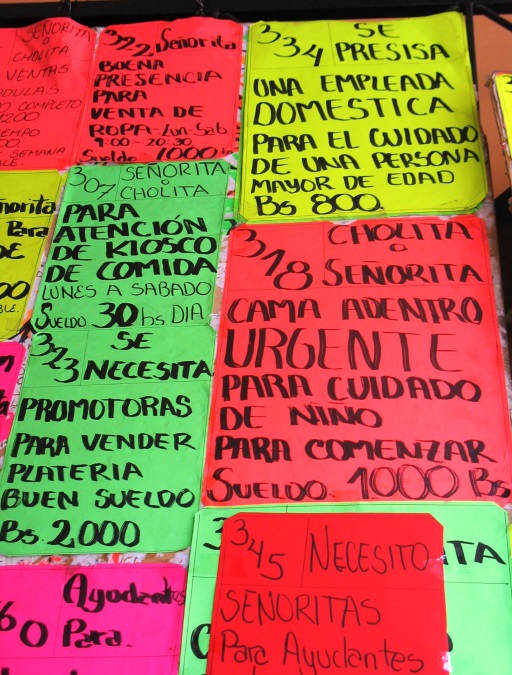 SEÑORITA
O
CHOLITA
VENTAS
COMPLETO
1200
SEMANA
322 Señorita
BUENA
PRESENCIA
PARA
VENTA DE
ROPA-Lun-Sab
9:00-20:30
Sueldo 1000
334 SE
PRESISA
UNA EMPLEADA
DOMESTICA
PARA EL CUIDADO
DE UNA PERSONA
MAYOR DE EDAD
Bs 800.
Para
307 SEÑORITA
o CHOLITA
PARA
ATENCIÓN
DE KIOSCO
DE COMIDA
LUNES A SABADO
SUELDO 30 bs DIA
318 CHOLITA
O
SEÑORITA
CAMA ADENTRO
URGENTE
PARA CUIDADO
DE NIÑO
PARA COMENZAR
SUELDO 1000 Bs
323 SE
NECESITA
PROMOTORAS
PARA VENDER
PLATERIA
BUEN SUELDO
Bs. 2,000
60 Ayudantes
Para.
345 NECESITO
SEÑORITAS
Para Ayudantes